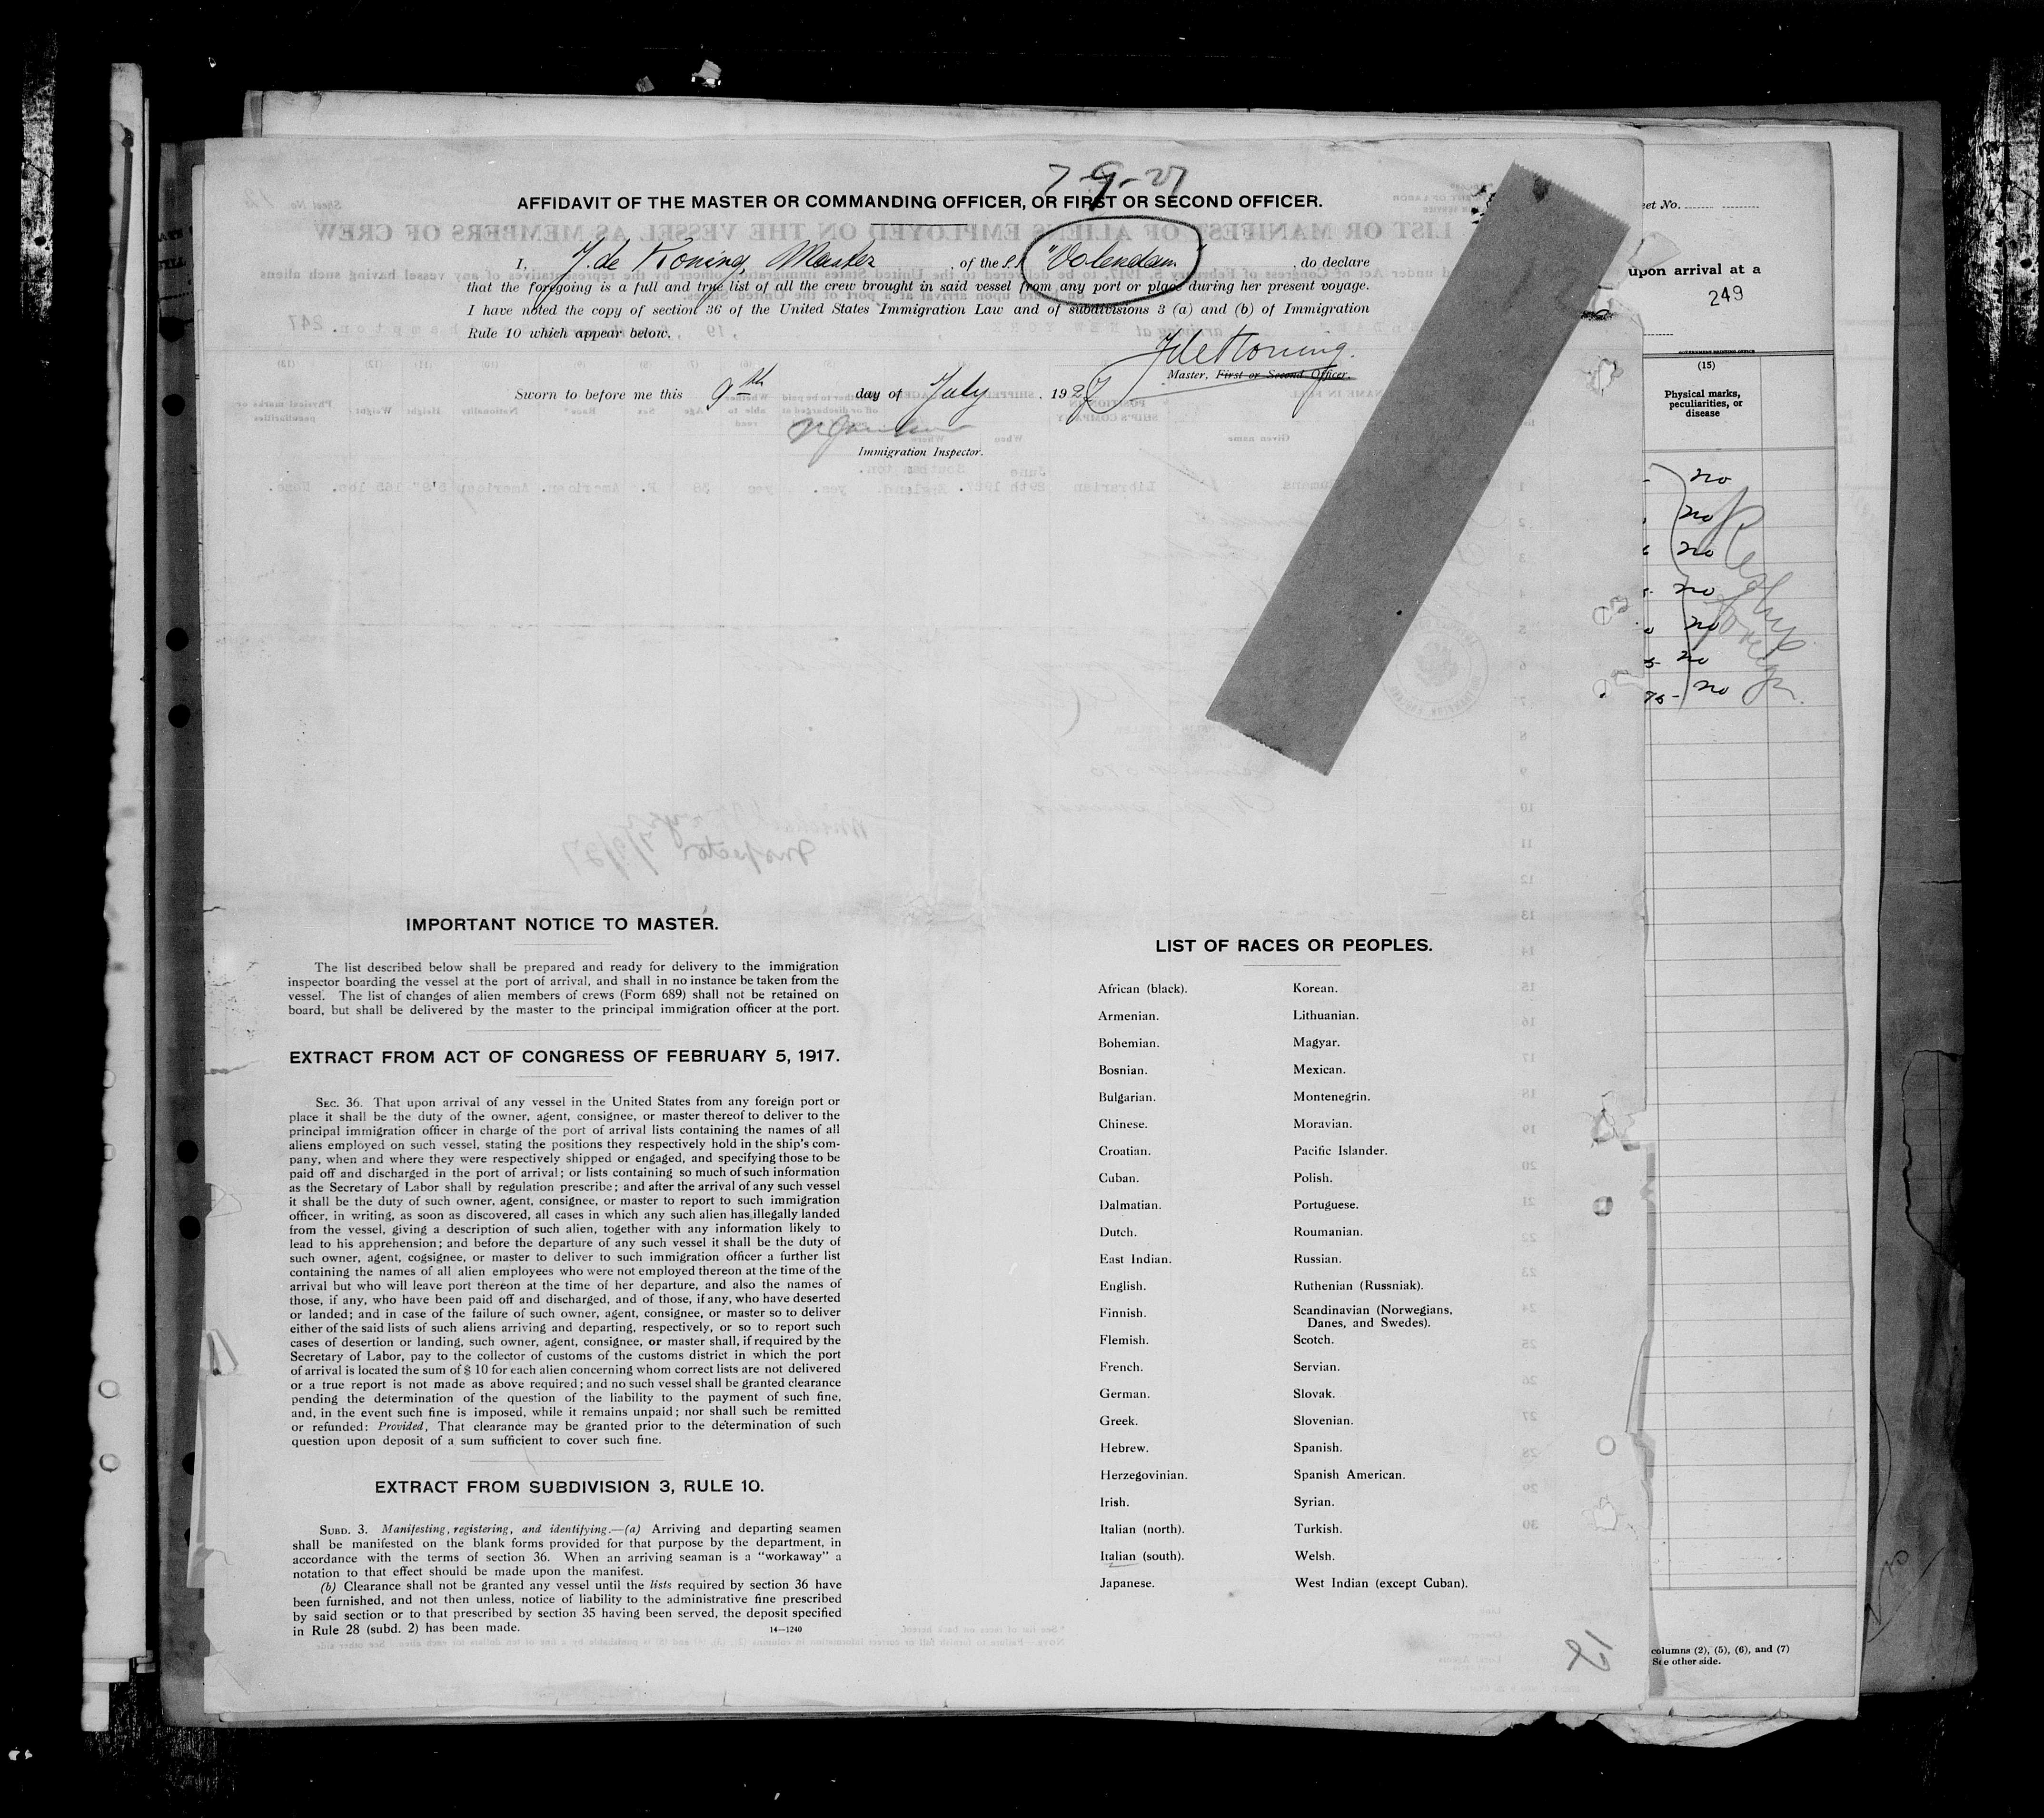 7-9-27
AFFIDAVIT OF THE MASTER OR COMMANDING OFFICER, OR FIRST OR SECOND OFFICER.
I, J. de Koning, Master, of the S.S. "Volendam", do declare
that the foregoing is a full and true list of all the crew brought in said vessel from any port or place during her present voyage.
I have noted the copy of section 36 of the United States Immigration Law and of subdivisions 3 (a) and (b) of Immigration
Rule 10 which appear below.
J de Koning.
Master, First or Second Officer.
Sworn to before me this 9th day of July, 1927
Immigration Inspector.
IMPORTANT NOTICE TO MASTER.
The list described below shall be prepared and ready for delivery to the immigration
inspector boarding the vessel at the port of arrival, and shall in no instance be taken from the
vessel. The list of changes of alien members of crews (Form 689) shall not be retained on
board, but shall be delivered by the master to the principal immigration officer at the port.
EXTRACT FROM ACT OF CONGRESS OF FEBRUARY 5, 1917.
SEC. 36. That upon arrival of any vessel in the United States from any foreign port or
place it shall be the duty of the owner, agent, consignee, or master thereof to deliver to the
principal immigration officer in charge of the port of arrival lists containing the names of all
aliens employed on such vessel, stating the positions they respectively hold in the ship's com-
pany, when and where they were respectively shipped or engaged, and specifying those to be
paid off and discharged in the port of arrival; or lists containing so much of such information
as the Secretary of Labor shall by regulation prescribe; and after the arrival of any such vessel
it shall be the duty of such owner, agent, consignee, or master to report to such immigration
officer, in writing, as soon as discovered, all cases in which any such alien has illegally landed
from the vessel, giving a description of such alien, together with any information likely to
lead to his apprehension; and before the departure of any such vessel it shall be the duty of
such owner, agent, cogsignee, or master to deliver to such immigration officer a further list
containing the names of all alien employees who were not employed thereon at the time of the
arrival but who will leave port thereon at the time of her departure, and also the names of
those, if any, who have been paid off and discharged, and of those, if any, who have deserted
or landed; and in case of the failure of such owner, agent, consignee, or master so to deliver
either of the said lists of such aliens arriving and departing, respectively, or so to report such
cases of desertion or landing, such owner, agent, consignee, or master shall, if required by the
Secretary of Labor, pay to the collector of customs of the customs district in which the port
of arrival is located the sum of $10 for each alien concerning whom correct lists are not delivered
or a true report is not made as above required; and no such vessel shall be granted clearance
pending the determination of the question of the liability to the payment of such fine,
and, in the event such fine is imposed, while it remains unpaid; nor shall such be remitted
or refunded: Provided, That clearance may be granted prior to the determination of such
question upon deposit of a sum sufficient to cover such fine.
EXTRACT FROM SUBDIVISION 3, RULE 10.
SUBD. 3. Manifesting, registering, and identifying.—(a) Arriving and departing seamen
shall be manifested on the blank forms provided for that purpose by the department, in
accordance with the terms of section 36. When an arriving seaman is a "workaway" a
notation to that effect should be made upon the manifest.
(b) Clearance shall not be granted any vessel until the lists required by section 36 have
been furnished, and not then unless, notice of liability to the administrative fine prescribed
by said section or to that prescribed by section 35 having been served, the deposit specified
in Rule 28 (subd. 2) has been made.
14—1240
LIST OF RACES OR PEOPLES.
African (black).
Armenian.
Bohemian.
Bosnian.
Bulgarian.
Chinese.
Croatian.
Cuban.
Dalmatian.
Dutch.
East Indian.
English.
Finnish.
Flemish.
French.
German.
Greek.
Hebrew.
Herzegovinian.
Irish.
Italian (north).
Italian (south).
Japanese.
Korean.
Lithuanian.
Magyar.
Mexican.
Montenegrin.
Moravian.
Pacific Islander.
Polish.
Portuguese.
Roumanian.
Russian.
Ruthenian (Russniak).
Scandinavian (Norwegians,
Danes, and Swedes).
Scotch.
Servian.
Slovak.
Slovenian.
Spanish.
Spanish American.
Syrian.
Turkish.
Welsh.
West Indian (except Cuban).
No.
upon arrival at a
249
GOVERNMENT PRINTING OFFICE
(15)
Physical marks,
peculiarities, or
disease
no
no
no
no
no
no
no
columns (2), (5), (6), and (7)
See other side.